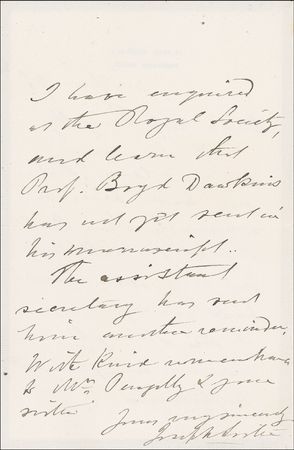 I have enquired
at the Royal Society,
and learn that
Prof. Boyd Dawkins
has not yet sent in
his manuscript.
The assistant
secretary has sent
him another reminder.
With kind remembrances
to Mrs Pengelly & your
sister
Yours very sincerely
Joseph Lister